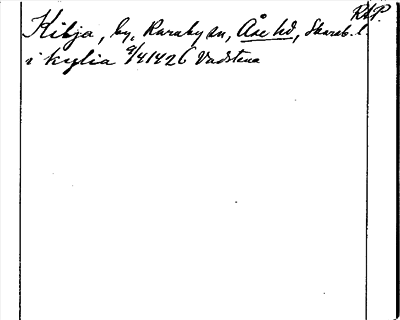 RAP.
Kilja, by, Karaby sn, Åse hd, Skarab. l.
i kylia 9/4 1426 Vadstena